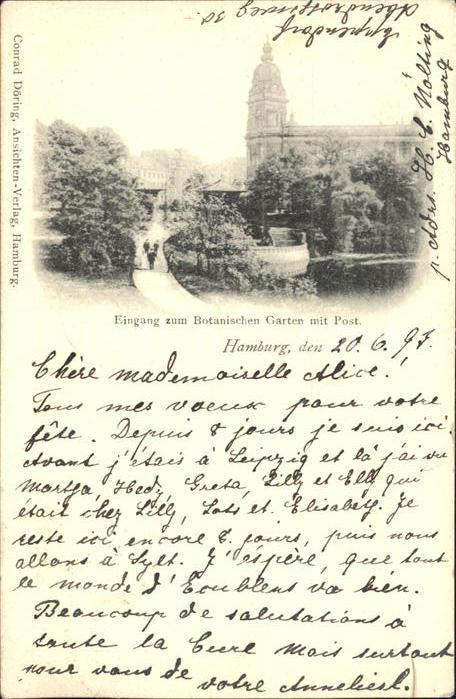 Eppendorf
Abendrothsweg 30.
p. Adrs. H. C. Nölting
Hamburg
Conrad Döring, Ansichten-Verlag, Hamburg.
Eingang zum Botanischen Garten mit Post.
Hamburg, den 20. 6. 97.
Chère mademoiselle Alice!
Tous mes voeux pour votre
fête. Depuis 8 jours je suis ici.
Avant j'étais à Leipzig et là j'ai vu
Martha, Hedy, Greta, Lilly et Elly qui
était chez Lilly, Lots et Elisabeth. Je
reste ici encore 8 jours, puis nous
allons à Sylt. J'espère, que tout
le monde d'Ecublens va bien.
Beaucoup de salutations à
toute la Cure mais surtout
pour vous de
votre Anneliese.